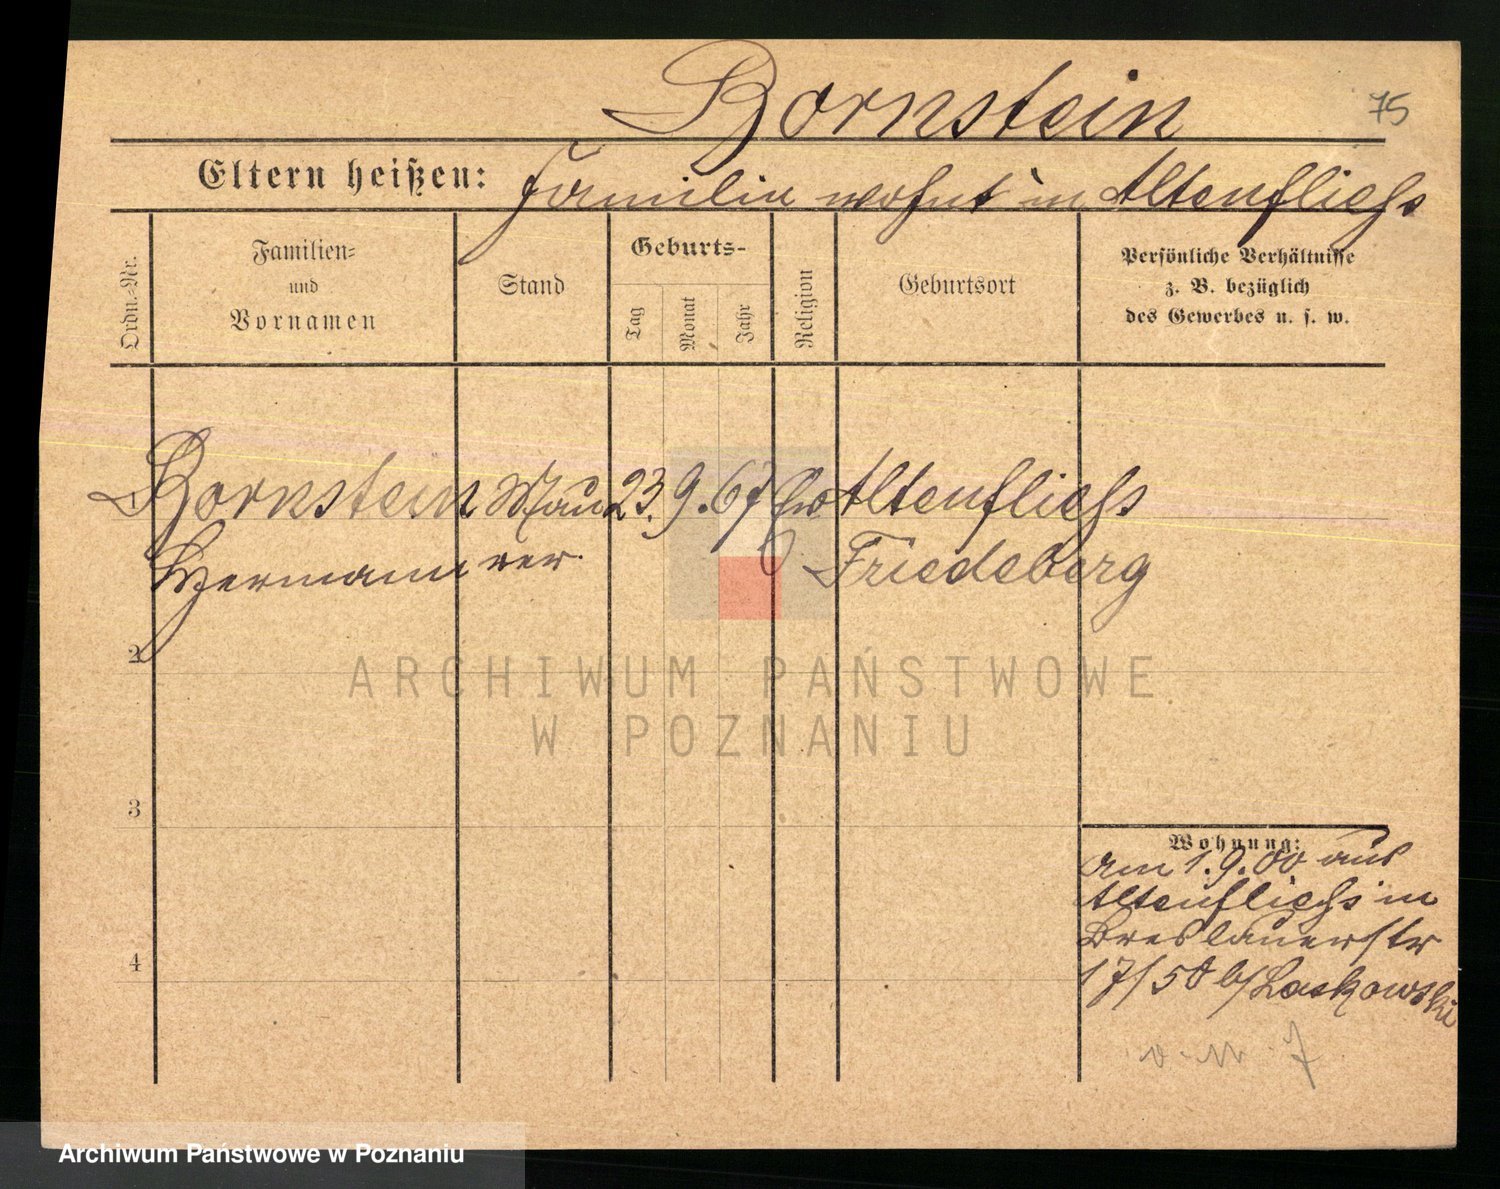 Bornstein
75
Eltern heißen: Familie wohnt in Altenfließ
Ordn.-Nr.
Familien-
und
Vornamen
Stand
Geburts-
Tag
Monat
Jahr
Religion
Geburtsort
Persönliche Verhältnisse
z. B. bezüglich
des Gewerbes u. s. w.
1 Bornstein Mau 23. 9. 67 Ev Altenfließ
Hermann rer. Friedeberg
2
3
4
Wohnung:
am 1.9.00 aus
Altenfließ in
Breslauerstr
17/50 b/ Laskowski
ARCHIWUM PAŃSTWOWE
W POZNANIU
Archiwum Państwowe w Poznaniu